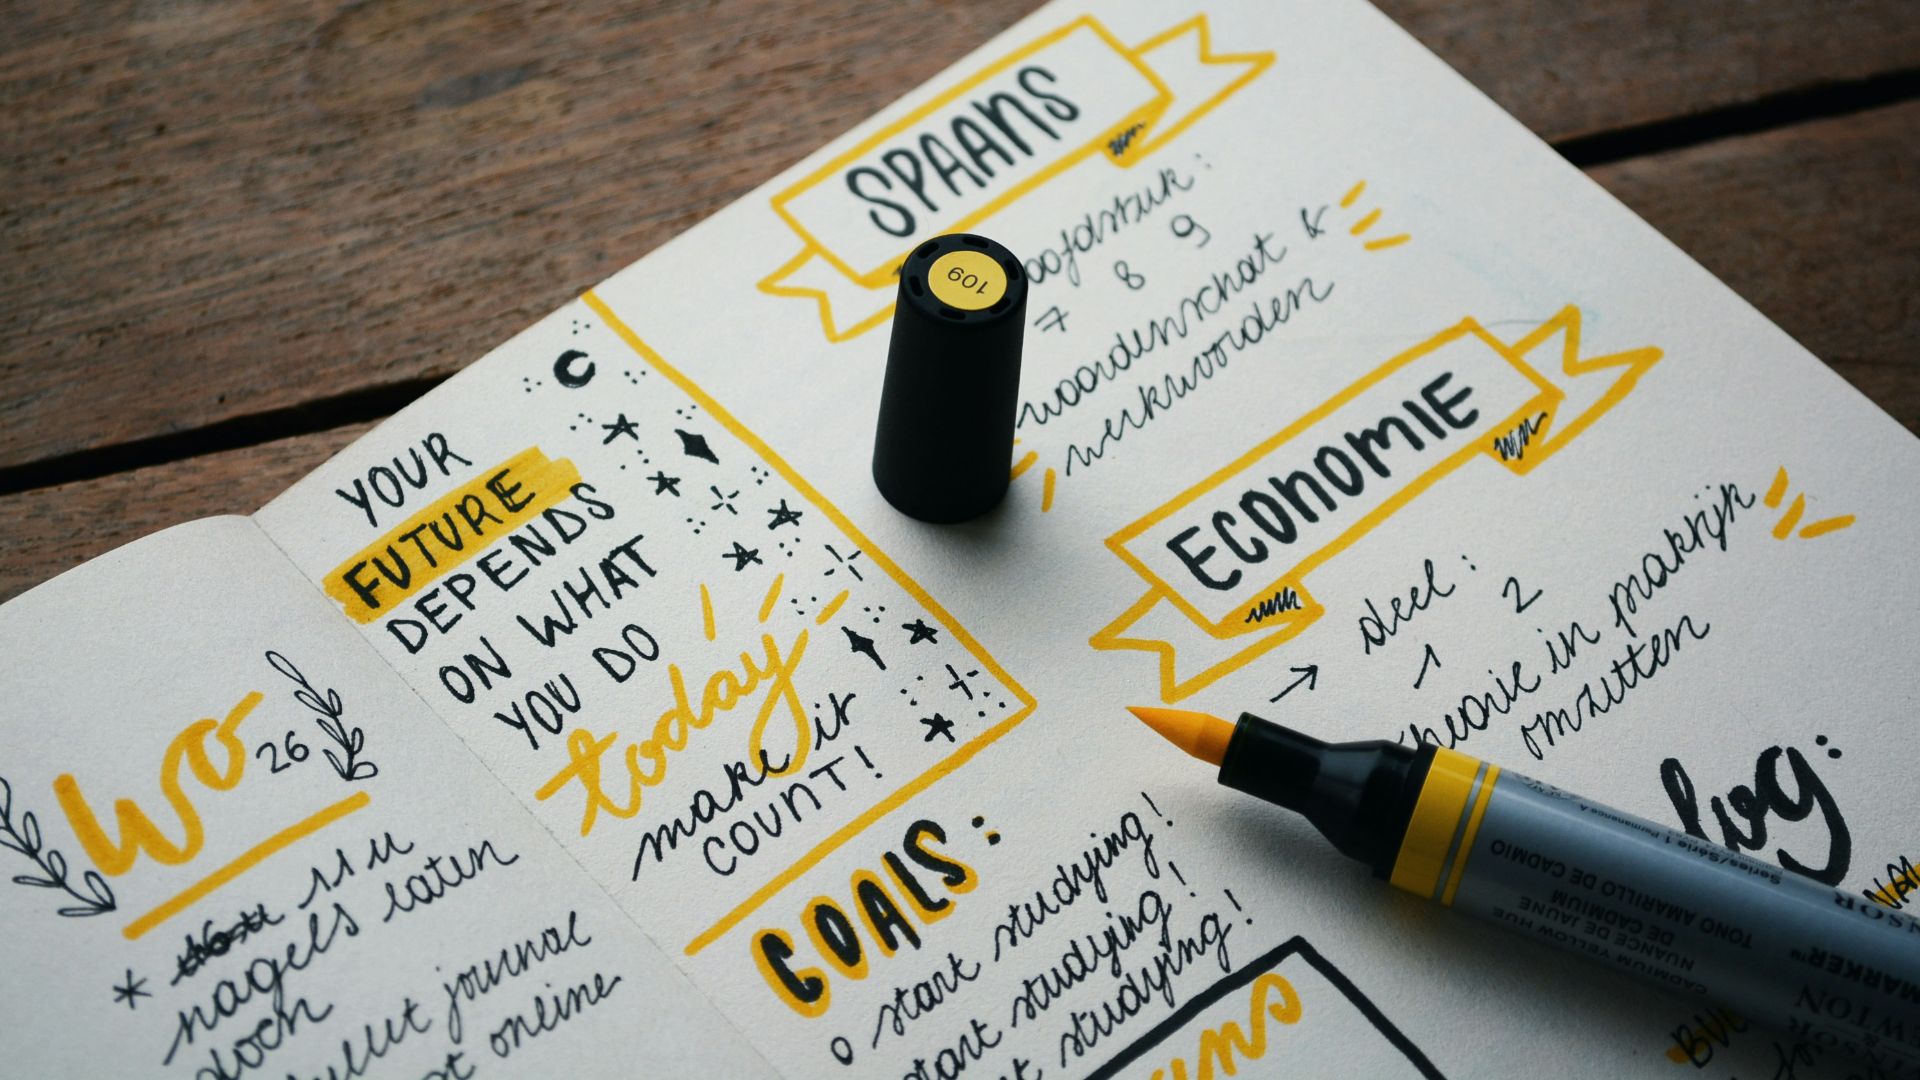 wo 26
* 11 u
nagels laten
doen
bullet journal
online
YOUR
FUTURE
DEPENDS
ON WHAT
YOU DO
today
make it
COUNT!
GOALS:
o start studying!
start studying!
start studying!
SPAANS
hoofdstuk:
7 8 9
woordenschat &
werkwoorden
109
ECONOMIE
→ deel:
1 2
theorie in praktijk
omzetten
log:
Series/Série 1 Permanence A
CADMIUM YELLOW HUE
NUANCE DE JAUNE
DE CADMIUM
TONO AMARILLO DE CADMIO
MARKER™